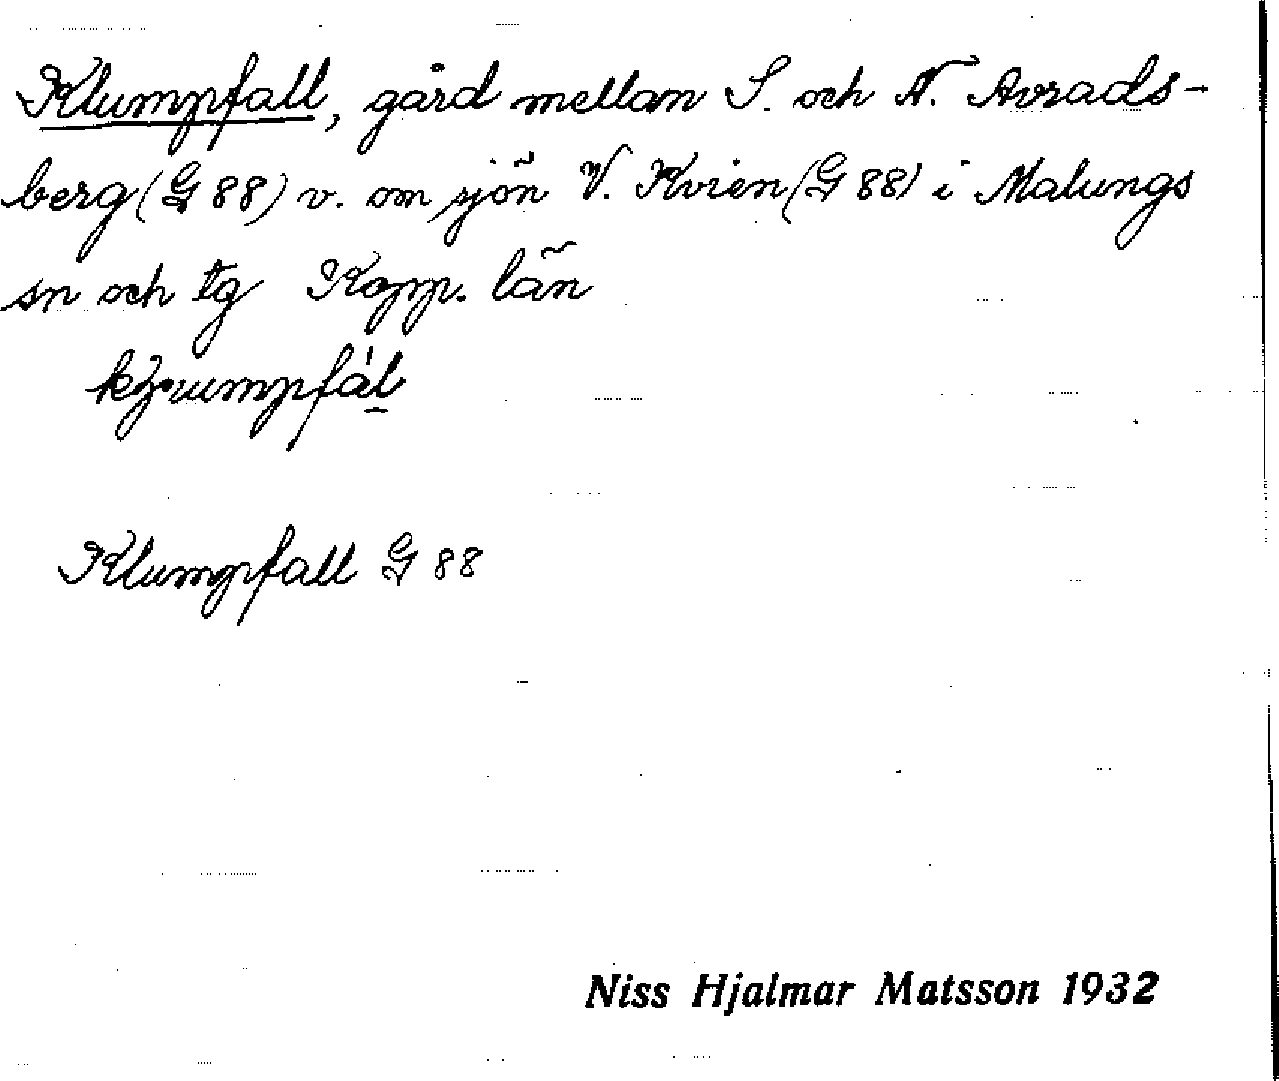 Klumpfall, gård mellan S. och N. Avrads-
berg (G 88) v. om sjön V. Kvien (G 88) i Malungs
sn och tg Kopp. län
Klumpfall G 88
Niss Hjalmar Matsson 1932